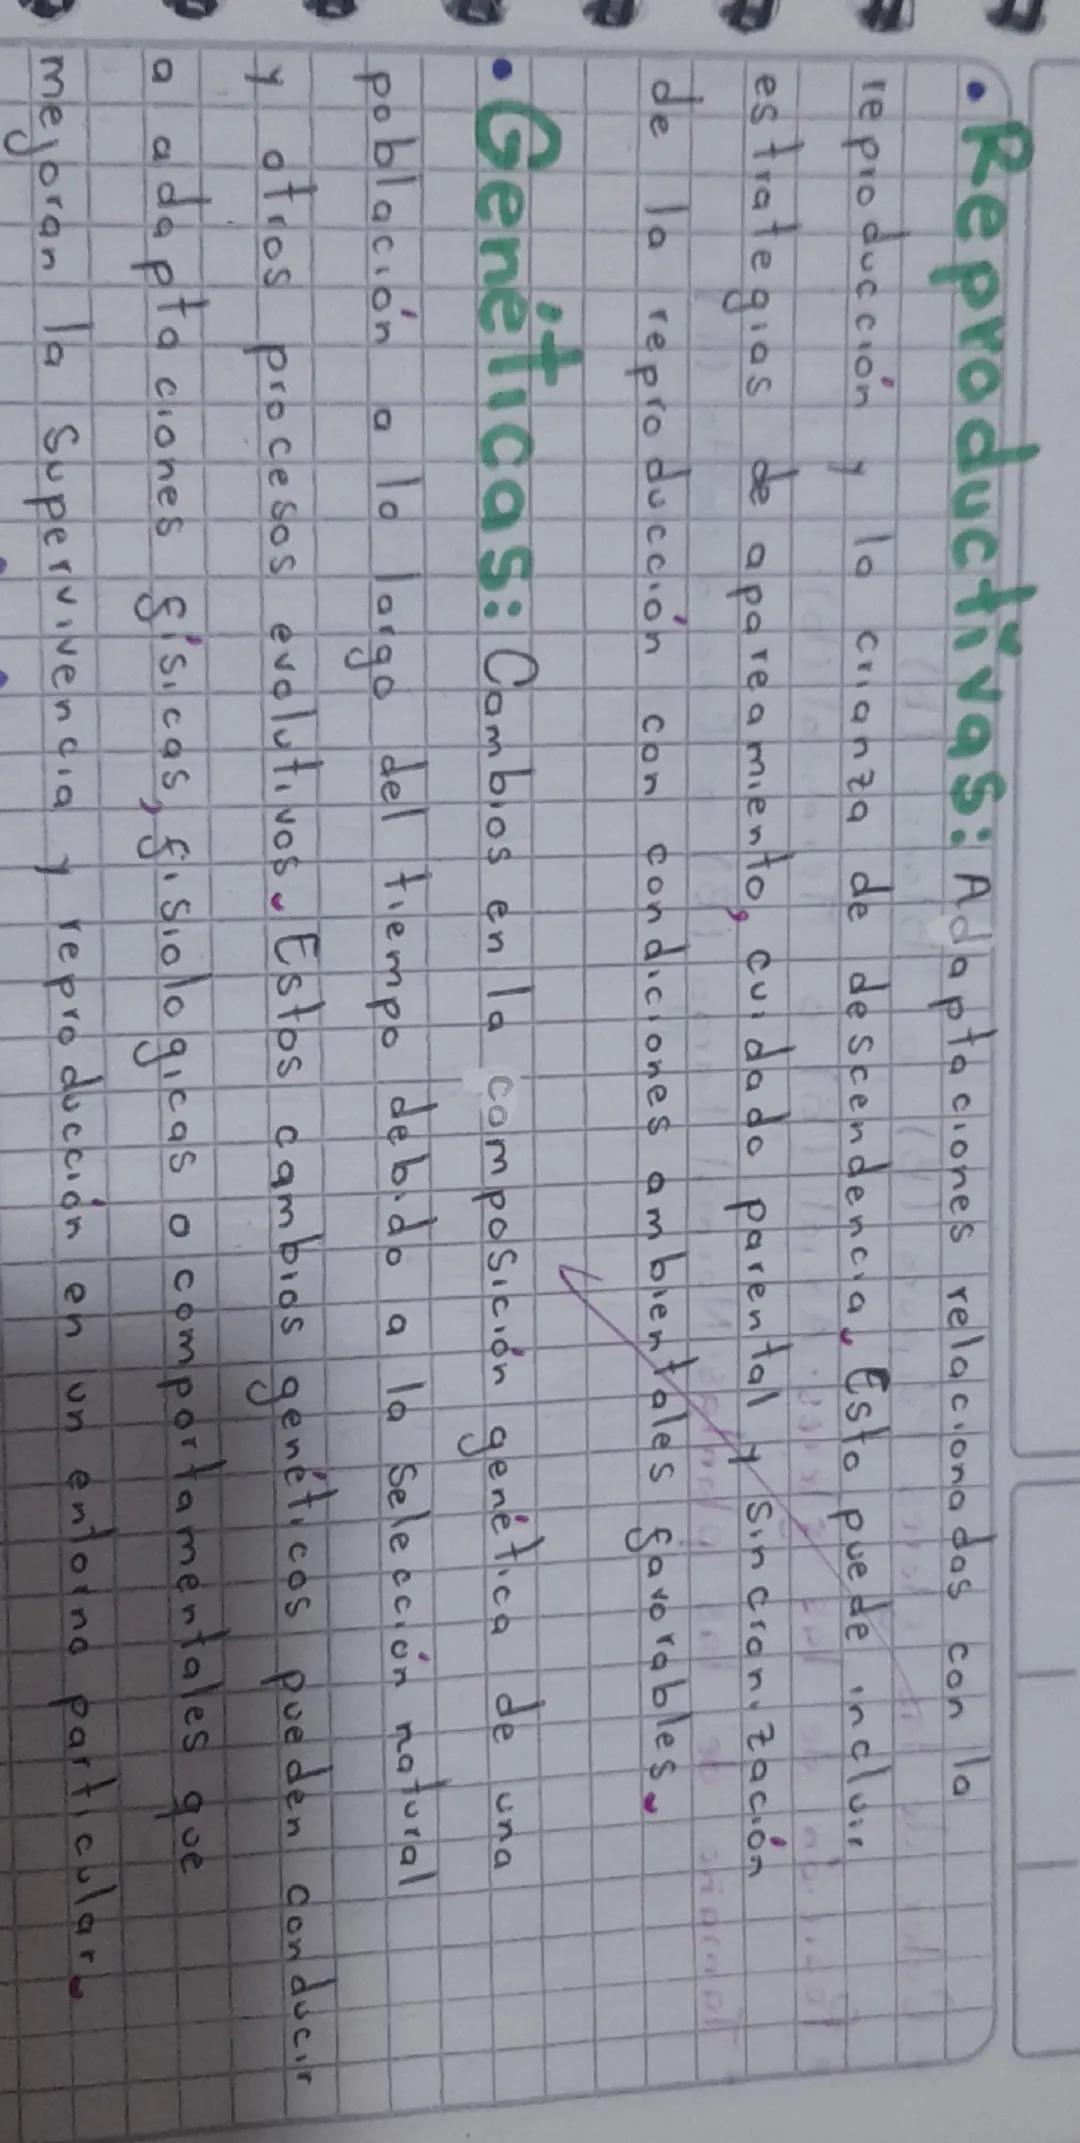 • Reproductivas: Adaptaciones relacionadas con la
reproducción y la crianza de descendencia. Esto puede incluir
estrategias de apareamiento, cuidado parental y sincronización
de la reproducción con condiciones ambientales favorables.
• Genéticas: Cambios en la composición genética de una
población a lo largo del tiempo debido a la selección natural
y otros procesos evolutivos. Estos cambios genéticos pueden conducir
a adaptaciones físicas, fisiologicas o comportamentales que
mejoran la supervivencia y reproducción en un entorno particular.